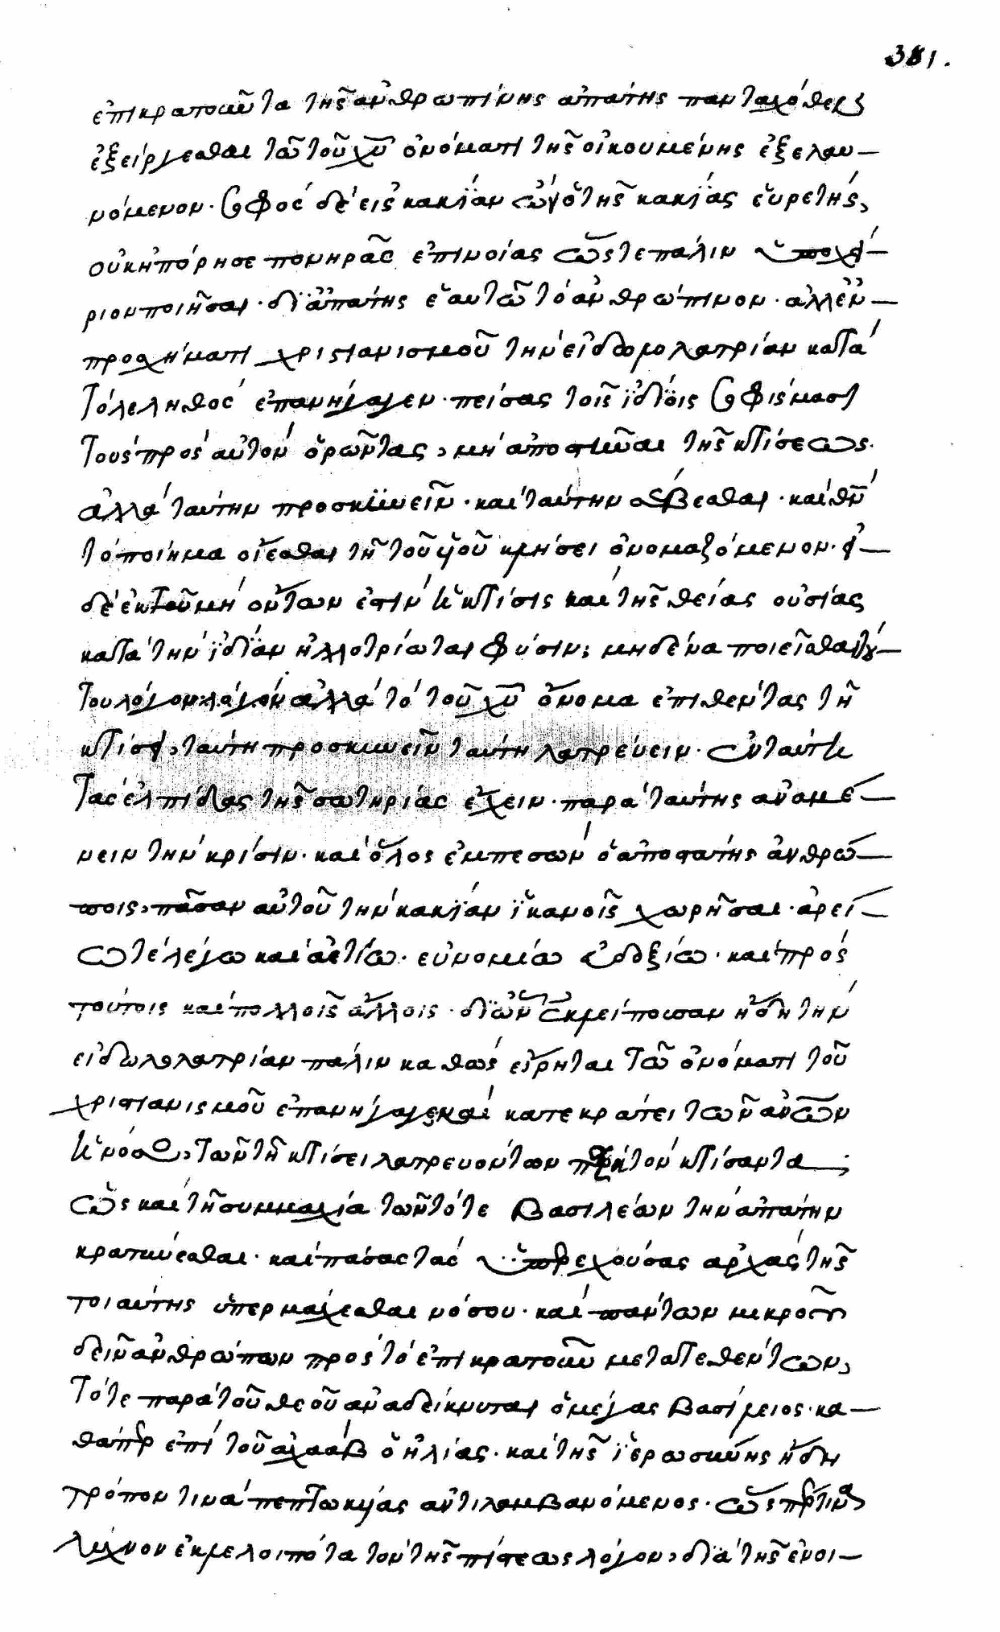 381.
ἐπικρατοῦντα τῆς ἀνθρωπίνης ἀπάτης πανταχόθεν
ἐξείργεσθαι τῶ τοῦ χῦ ὀνόματι τῆς οἰκουμένης ἐξελαυ-
νόμενον. σοφὸς δὲ εἰς κακίαν ὢν ὁ τῆς κακίας εὑρετής,
οὐκ ἠπόρησε πονηρᾶς ἐπινοίας ὥστε πάλιν ὑποχεί-
ριον ποιῆσαι. δι ἀπάτης ἑαυτῶ τὸ ἀνθρώπινον. ἀλλ ἐν
προσχήματι χριστιανισμοῦ τὴν εἰδωλολατρίαν κατὰ
τὸ λεληθὸς ἐπανήγαγεν. πείσας τοῖς ἰδίοις σοφίσμασι
τοὺς πρὸς αὐτὸν ὁρῶντας, μὴ ἀποστῆναι τῆς κτίσεως.
ἀλλὰ ταύτην προσκυνεῖν. καὶ ταύτην σέβεσθαι. καὶ θῦ
τὸ ποίημα οἴεσθαι τῆ τοῦ υἱοῦ κλήσει ὀνομαζόμενον. εἰ
δὲ ἐκ τοῦ μὴ ὄντων ἐστὶν ἡ κτίσις καὶ τῆς θείας οὐσίας
κατὰ τὴν ἰδίαν ἠλλοτρίωται φύσιν, μηδένα ποιεῖσθαι τού-
του λόγον λόγον ἀλλὰ τὸ τοῦ χῦ ὄνομα ἐπιθέντας τῆ
κτίσει, ταύτη προσκυνεῖν ταύτη λατρεύειν. ἐν ταύτη
τὰς ἐλπίδας τῆς σωτηρίας ἔχειν. παρὰ ταύτης ἀναμέ-
νειν τὴν κρίσιν. καὶ ὅλος ἐμπεσὼν ὁ ἀποστάτης ἀνθρώ-
ποις, πᾶσαν αὐτοῦ τὴν κακίαν ἱκανοῖς χωρῆσαι. ἀρεί-
ω τε λέγω καὶ ἀετίω. εὐνομίω εὐδοξίω. καὶ πρὸς
τούτοις καὶ πολλοῖς ἄλλοις. δι ὧν ἐκλείπουσαν ἤδη τὴν
εἰδωλολατρίαν πάλιν καθὼς εἴρηται τῶ ὀνόματι τοῦ
χριστιανισμοῦ ἐπανήγαγε καὶ κατεκράτει τῶν ἀνῶν
ἡ νόσος, τῶν τῆ κτίσει λατρευόντων παρὰ τὸν κτίσαντα
ὡς καὶ τῆ συμμαχία τῶν τότε βασιλέων τὴν ἀπάτην
κρατύνεσθαι. καὶ πάσας τὰς ὑπερεχούσας ἀρχὰς τῆς
τοιαύτης ὑπερμάχεσθαι νόσου. καὶ πάντων μικροῦ
δεῖν ἀνθρώπων πρὸς τὸ ἐπικρατοῦν μετατεθέντων,
τότε παρὰ τοῦ θεοῦ ἀναδείκνυται ὁ μέγας βασίλειος. κα-
θάπερ ἐπὶ τοῦ ἀχαὰβ ὁ ἠλίας. καὶ τῆς ἱερωσύνης ἤδη
τρόπον τινὰ πεπτωκυίας ἀντιλαμβανόμενος. ὥσπερ τινὰ
λύχνον ἐκλελοιπότα τὸν τῆς πίστεως λόγον, διὰ τῆς ἐνοι-